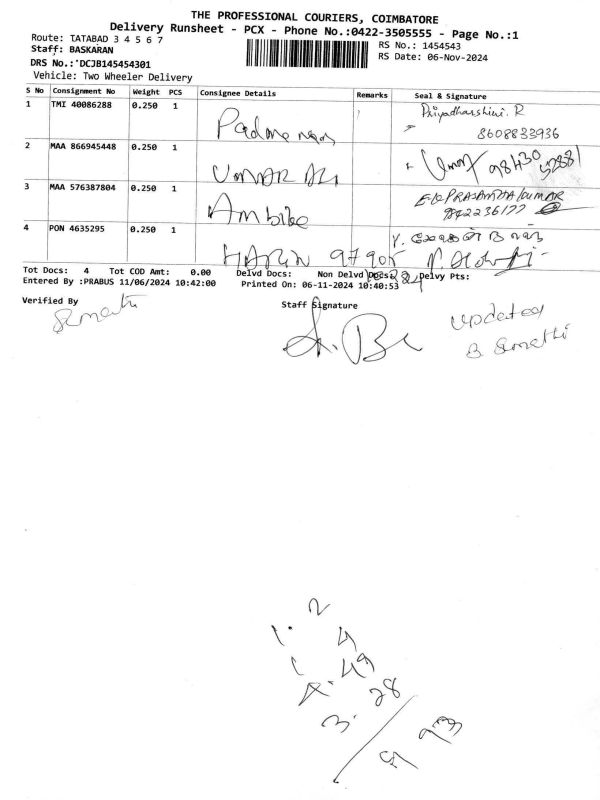 THE PROFESSIONAL COURIERS, COIMBATORE
Delivery Runsheet - PCX - Phone No.:0422-3505555 - Page No.:1
Route: TATABAD 3 4 5 6 7
Staff: BASKARAN
DRS No.: DCJB145454301
Vehicle: Two Wheeler Delivery
RS No.: 1454543
RS Date: 06-Nov-2024
S No Consignment No Weight PCS Consignee Details Remarks Seal & Signature
1 TMI 40086288 0.250 1 Priyadharshini. R
8608833936
2 MAA 866945448 0.250 1 UMAR ALI Umar 98430
3 MAA 576387804 0.250 1 Ambika E.K PRASANTHA KUMAR
9842236177
4 PON 4635295 0.250 1 HARIN 97905
Tot Docs: 4 Tot COD Amt: 0.00 Delvd Docs: Non Delvd Docs: Delvy Pts:
Entered By :PRABUS 11/06/2024 10:42:00 Printed On: 06-11-2024 10:40:53
Verified By Staff Signature
Sumathi
updated
B Sumathi
1. 2
4
4. 49
3. 28
93